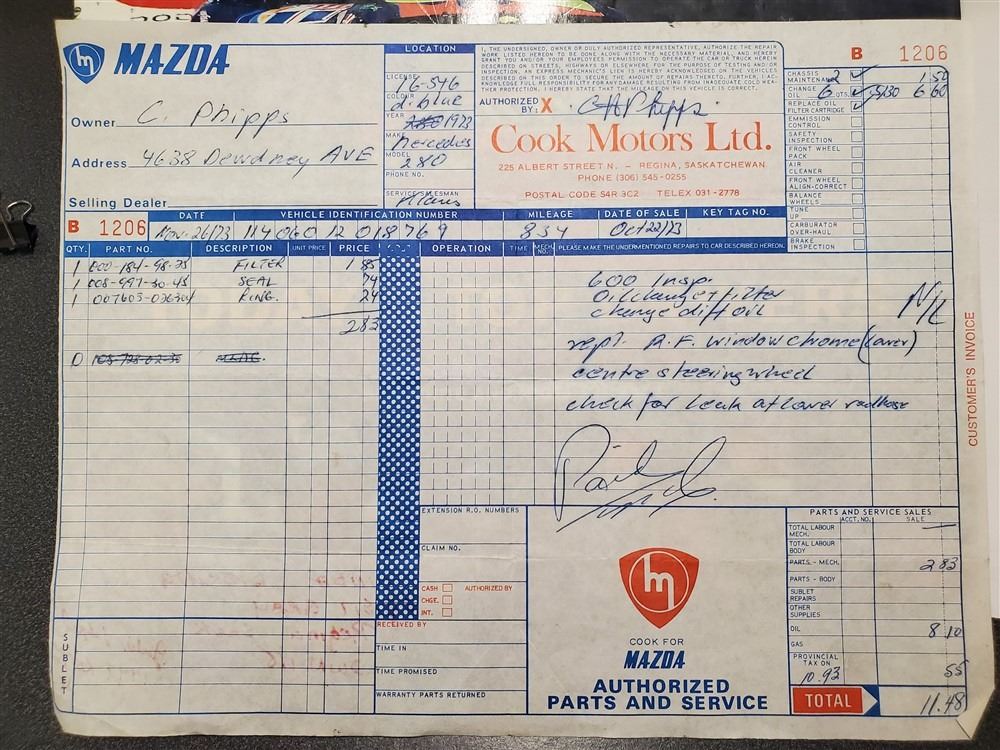 MAZDA
LOCATION
LICENSE 76-546
COLOUR d. blue
YEAR 1973
MAKE Mercedes
MODEL 280
PHONE NO.
SERVICE SALESMAN
Owner C. Phipps
Address 4638 Dewdney AVE
Selling Dealer
I, THE UNDERSIGNED, OWNER OR DULY AUTHORIZED REPRESENTATIVE, AUTHORIZE THE REPAIR
WORK LISTED HEREON TO BE DONE ALONG WITH THE NECESSARY MATERIAL, AND HEREBY
GRANT YOU AND/OR YOUR EMPLOYEES PERMISSION TO OPERATE THE CAR OR TRUCK HEREIN
DESCRIBED ON STREETS, HIGHWAYS OR ELSEWHERE FOR THE PURPOSE OF TESTING AND/OR
INSPECTION. AN EXPRESS MECHANIC'S LIEN IS HEREBY ACKNOWLEDGED ON THE VEHICLES
DESCRIBED ON THIS ORDER TO SECURE THE AMOUNT OF REPAIRS THERETO. FURTHER, I AC-
KNOWLEDGE FULL RESPONSIBILITY FOR ANY DAMAGE RESULTING FROM INADEQUATE COLD WEA-
THER PROTECTION. I HEREBY STATE THAT THE MILEAGE ON THIS VEHICLE IS CORRECT.
AUTHORIZED BY: X C H Phipps
Cook Motors Ltd.
225 ALBERT STREET N. – REGINA, SASKATCHEWAN
PHONE (306) 545-0255
POSTAL CODE S4R 3C2 TELEX 031-2778
B 1206
CHASSIS MAINTENANCE 2 1 50
CHANGE OIL 6 QTS. 5/30 6 60
REPLACE OIL FILTER CARTRIDGE
EMMISSION CONTROL
SAFETY INSPECTION
FRONT WHEEL PACK
AIR CLEANER
FRONT WHEEL ALIGN-CORRECT
BALANCE WHEELS
TUNE UP
CARBURATOR OVER-HAUL
BRAKE INSPECTION
B 1206
DATE VEHICLE IDENTIFICATION NUMBER MILEAGE DATE OF SALE KEY TAG NO.
Nov. 26/73 114 060 12 018769 834 Oct 22/73
QTY. PART NO. DESCRIPTION UNIT PRICE PRICE OPERATION TIME MECH. NO. PLEASE MAKE THE UNDERMENTIONED REPAIRS TO CAR DESCRIBED HEREON.
1 000-184-98-25 FILTER 1 85
1 008-997-30-45 SEAL 74
1 RING. 24
2 83
0
600 Insp.
Oil change + filter
change diff oil
N/C
repl. R.F. window chrome (lower)
centre steering wheel
check for leak at lower rad hose
Paid
EXTENSION R.O. NUMBERS
CLAIM NO.
CASH AUTHORIZED BY
CHGE.
INT.
RECEIVED BY
TIME IN
TIME PROMISED
WARRANTY PARTS RETURNED
SUBLET
COOK FOR
MAZDA
AUTHORIZED
PARTS AND SERVICE
PARTS AND SERVICE SALES
ACCT. NO. SALE
TOTAL LABOUR MECH. —
TOTAL LABOUR BODY
PARTS - MECH. 2 83
PARTS - BODY
SUBLET REPAIRS
OTHER SUPPLIES
OIL 8 10
GAS
PROVINCIAL TAX ON 10.93 55
TOTAL 11.48
CUSTOMER'S INVOICE